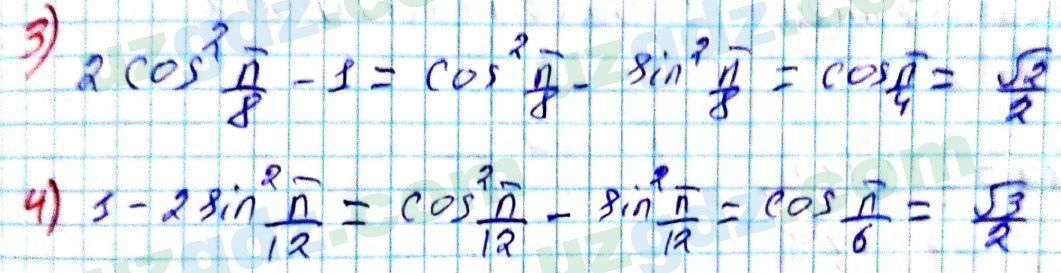 3) 2 cos² π/8 - 1 = cos² π/8 - sin² π/8 = cos π/4 = √2/2
4) 1 - 2 sin² π/12 = cos² π/12 - sin² π/12 = cos π/6 = √3/2